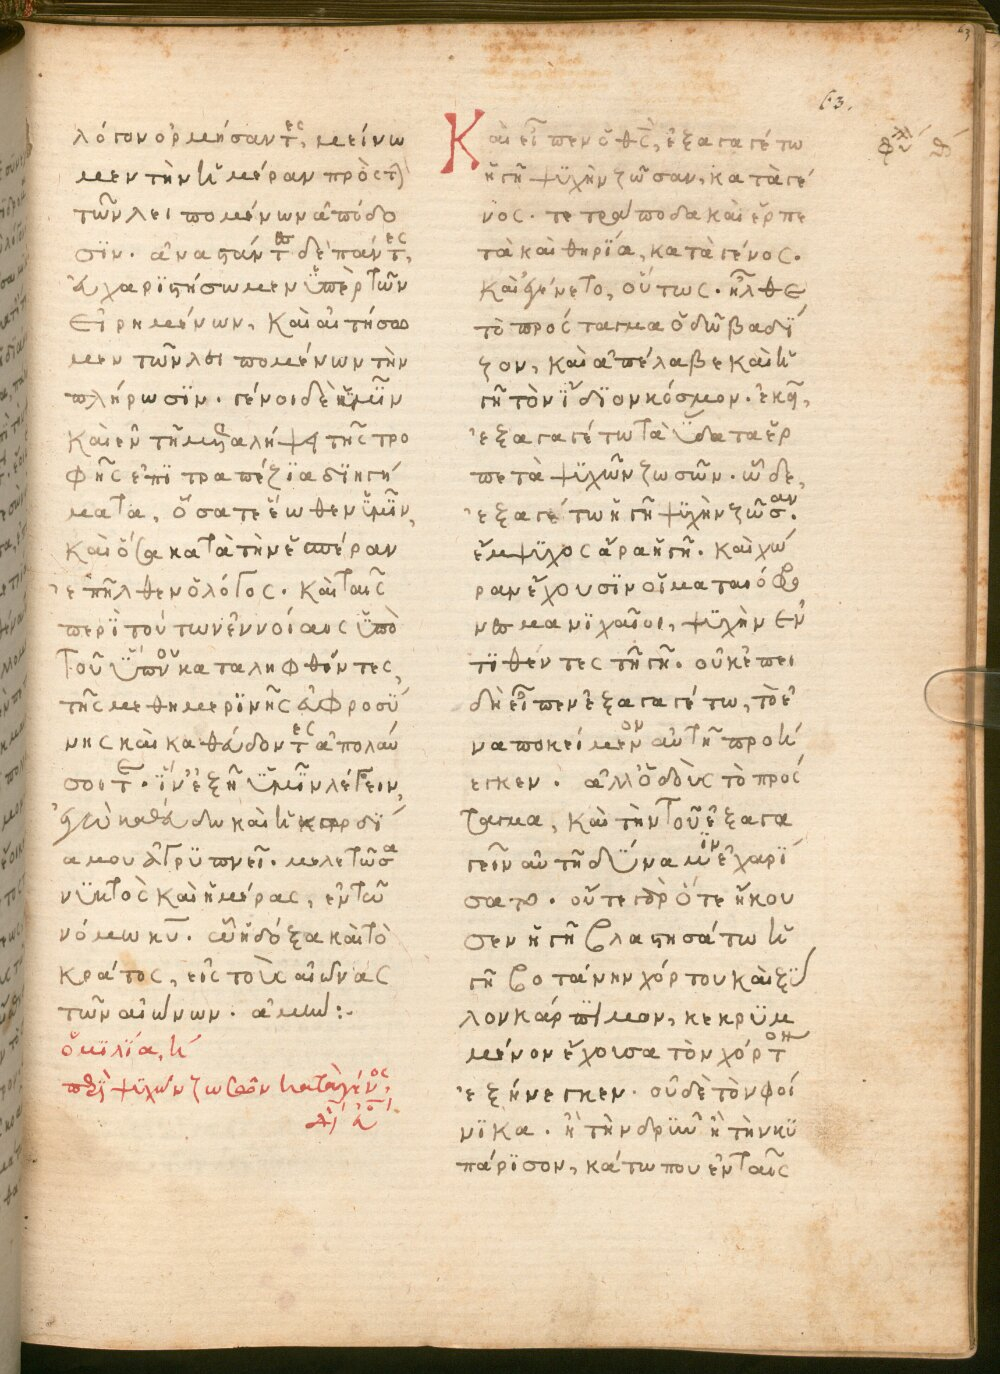 63.
λόγον ὁρμήσαντες, μείνω
μεν τὴν ἡμέραν πρὸς τὴν
τῶν λειπομένων ἀπόδο
σϊν. ἀναστάντες δὲ πάντες,
εὐχαρϊστήσωμεν ὑπὲρ τῶν
εἰρημένων, καὶ αἰτήσω
μεν τῶν λειπομένων τὴν
πλήρωσϊν. γένοι δὲ ἡμῖν
καὶ ἐν τῇ μεταλήψει τῆς τρο
φῆς ἐπϊτραπέζϊα δϊηγή
ματα, ὅσα τε ἕωθεν ὑμῖν,
καὶ ὅσα κατὰ τὴν ἑσπέραν
ἐπῆλθεν ὁ λόγος. καὶ ταῖς
περὶ τούτων ἐννοίαις ὑπὸ
τοῦ ὕπνου καταληφθέντες,
τῆς μεθημερϊνῆς εὐφροσύ
νης καὶ καθεύδοντες ἀπολαύ
σοιτε. ἵν' ἐξῇ ὑμῖν λέγειν,
ἐγὼ καθεύδω καὶ ἡ καρδί
α μου ἀγρϋπνεῖ. μελετῶσα
νϋκτὸς καὶ ἡμέρας, ἐν τῷ
νόμω κυ. ᾧ ἡ δόξα καὶ τὸ
κράτος, εἰς τοὺς αἰῶνας
τῶν αἰώνων. ἀμήν:-
ὁμϊλϊα, η
περὶ ψϋχῶν ζωσῶν κατὰ γένος,
Καὶ εἶπεν ὁ θς, ἐξαγαγέτω
ἡ γῆ ψϋχὴν ζῶσαν, κατὰ γέ
νος. τετράποδα καὶ ἕρπε
τὰ καὶ θηρϊα, κατὰ γένος.
καὶ ἐγένετο, οὕτως. ἦλθε
τὸ πρόσταγμα ὁδῷ βαδϊ
ζον, καὶ ἀπέλαβε καὶ ἡ
γῆ τὸν ἴδϊον κόσμον. ἐκεῖ,
ἐξαγαγέτω τὰ ὕδατα ἕρ
πετὰ ψϋχῶν ζωσῶν. ὧδε,
ἐξαγέτω ἡ γῆ ψϋχὴν ζῶσαν.
ἔμψϋχος ἄρα ἡ γῆ. καὶ χώ
ραν ἔχουσϊν οἱ ματαιόφρο
νες μανϊχαῖοι, ψϋχὴν ἐν
τϊθέντες τῇ γῇ. οὐκ ἐπει
δὴ εἶπεν ἐξαγαγέτω, τὸ ἐ
ναποκείμενον αὐτῇ προή
εγκεν. ἀλλ' ὁ δοὺς τὸ πρόσ
ταγμα, καὶ τὴν τοῦ ἐξαγα
γεῖν αὐτῇ δύναμϊν ἐχαρί
σατο. οὔτε γὰρ ὅτε ἤκου
σεν ἡ γῆ βλαστησάτω ἡ
γῆ βοτάνην χόρτου καὶ ξύ
λον κάρπϊμον, κεκρϋμ
μένον ἔχουσα τὸν χόρτον
ἐξήνεγκεν. οὐδὲ τὸν φοί
νϊκα. ἢ τὴν δρῦν ἢ τὴν κϋ
πάρϊσον, κάτω που ἐν ταῖς